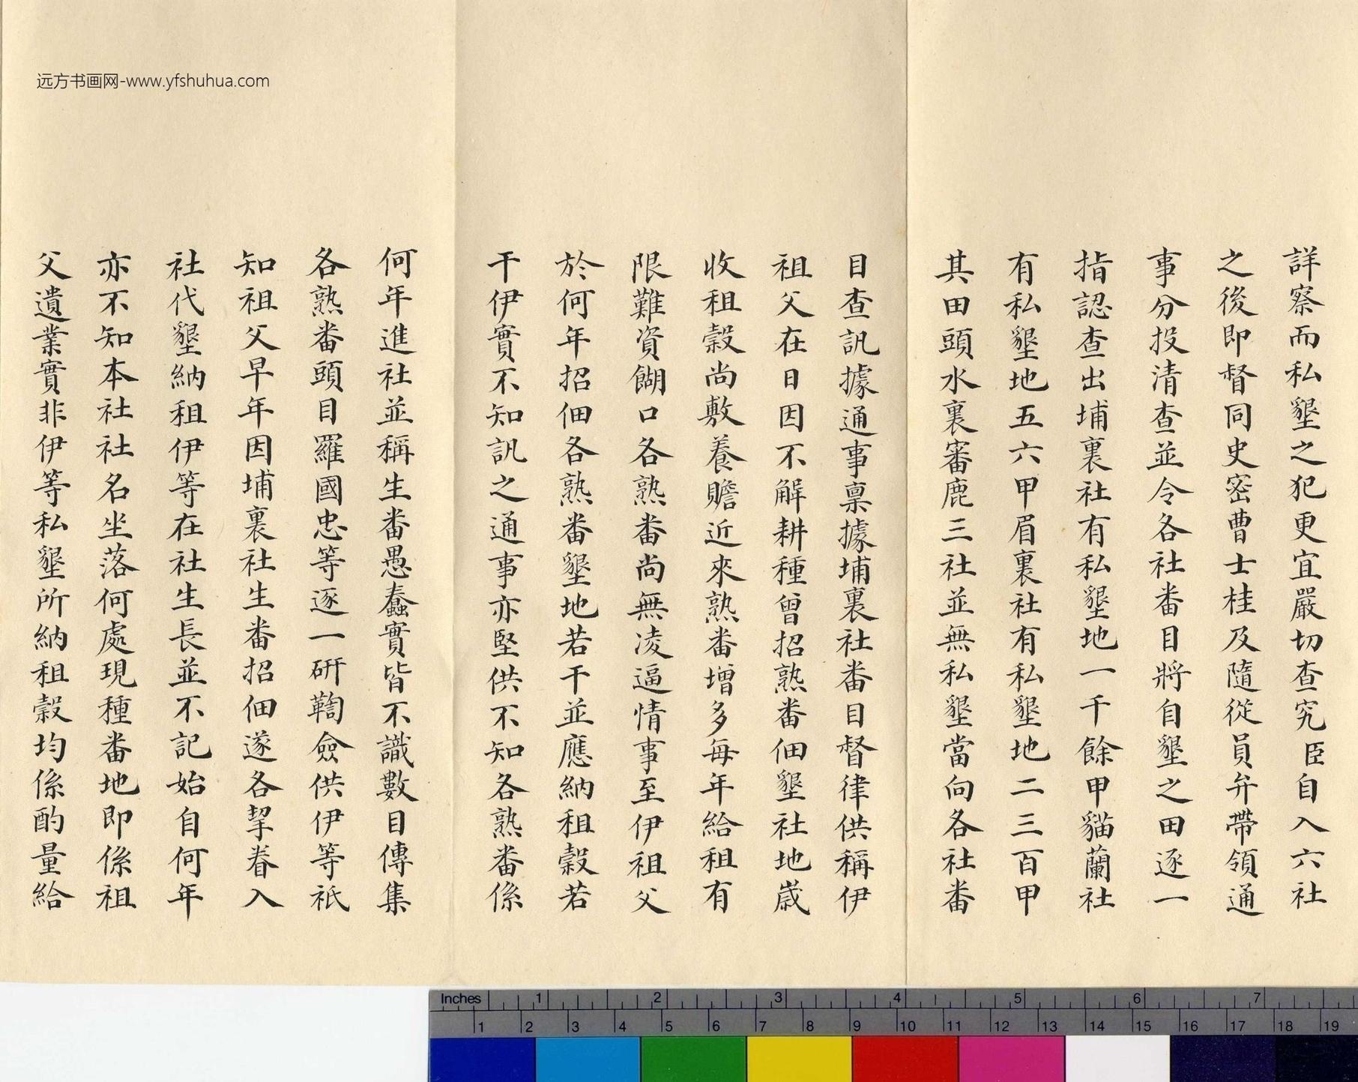 远方书画网-www.yfshuhua.com
詳察而私墾之犯更宜嚴切查究臣自入六社
之後即督同史密曹士桂及隨從員弁帶領通
事分投清查並令各社番目將自墾之田逐一
指認查出埔裏社有私墾地一千餘甲貓蘭社
有私墾地五六甲眉裏社有私墾地二三百甲
其田頭水裏審鹿三社並無私墾當向各社番
目查訊據通事稟據埔裏社番目督律供稱伊
祖父在日因不解耕種曾招熟番佃墾社地歲
收租穀尚敷養贍近來熟番增多每年給租有
限難資餬口各熟番尚無凌逼情事至伊祖父
於何年招佃各熟番墾地若干並應納租穀若
干伊實不知訊之通事亦堅供不知各熟番係
何年進社並稱生番愚蠢實皆不識數目傳集
各熟番頭目羅國忠等逐一研鞫僉供伊等祇
知祖父早年因埔裏社生番招佃遂各挈眷入
社代墾納租伊等在社生長並不記始自何年
亦不知本社社名坐落何處現種番地即係祖
父遺業實非伊等私墾所納租穀均係酌量給
Inches 1 2 3 4 5 6 7
1 2 3 4 5 6 7 8 9 10 11 12 13 14 15 16 17 18 19